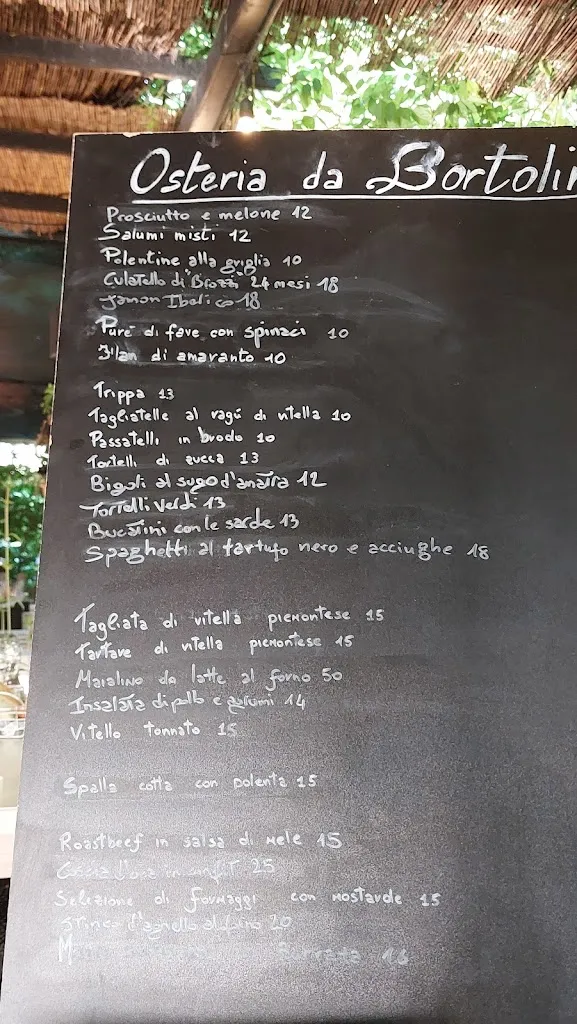 Osteria da Bortolin
Prosciutto e melone 12
Salumi misti 12
Polentine alla griglia 10
Culatello di 24 mesi 18
Jamon Iberico 18
Puré di fave con spinaci 10
Flan di amaranto 10
Trippa 13
Tagliatelle al ragú di vitella 10
Passatelli in brodo 10
Tortelli di zucca 13
Bigoli al sugo d'anatra 12
Tortelli verdi 13
Bucatini con le sarde 13
Spaghetti al tartufo nero e acciughe 18
Tagliata di vitella piemontese 15
Tartare di vitella piemontese 15
Maialino da latte al forno 50
Insalata di pollo e agrumi 14
Vitello tonnato 15
Spalla cotta con polenta 15
Roastbeef in salsa di mele 15
Coscia d'oca in confit 25
Selezione di formaggi con mostarde 15
Stinco d'agnello al forno 20
Burrata